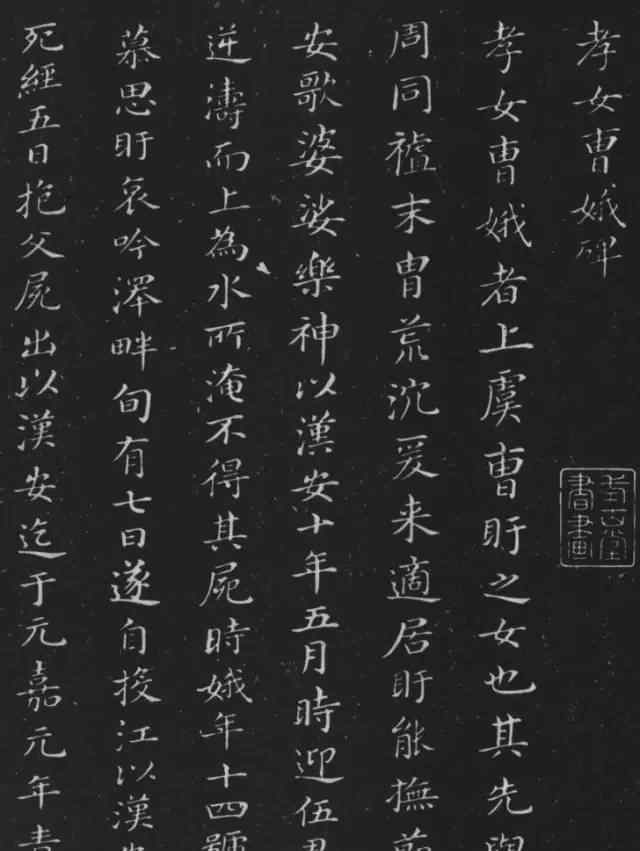 孝女曹娥碑
孝女曹娥者上虞曹盱之女也其先與
周同祖末胄荒沉爰来適居盱能撫節
安歌婆娑樂神以漢安二年五月時迎伍君
逆濤而上為水所淹不得其屍時娥年十四號
慕思盱哀吟澤畔旬有七日遂自投江以漢
死經五日抱父屍出以漢安迄于元嘉元年青
書畫